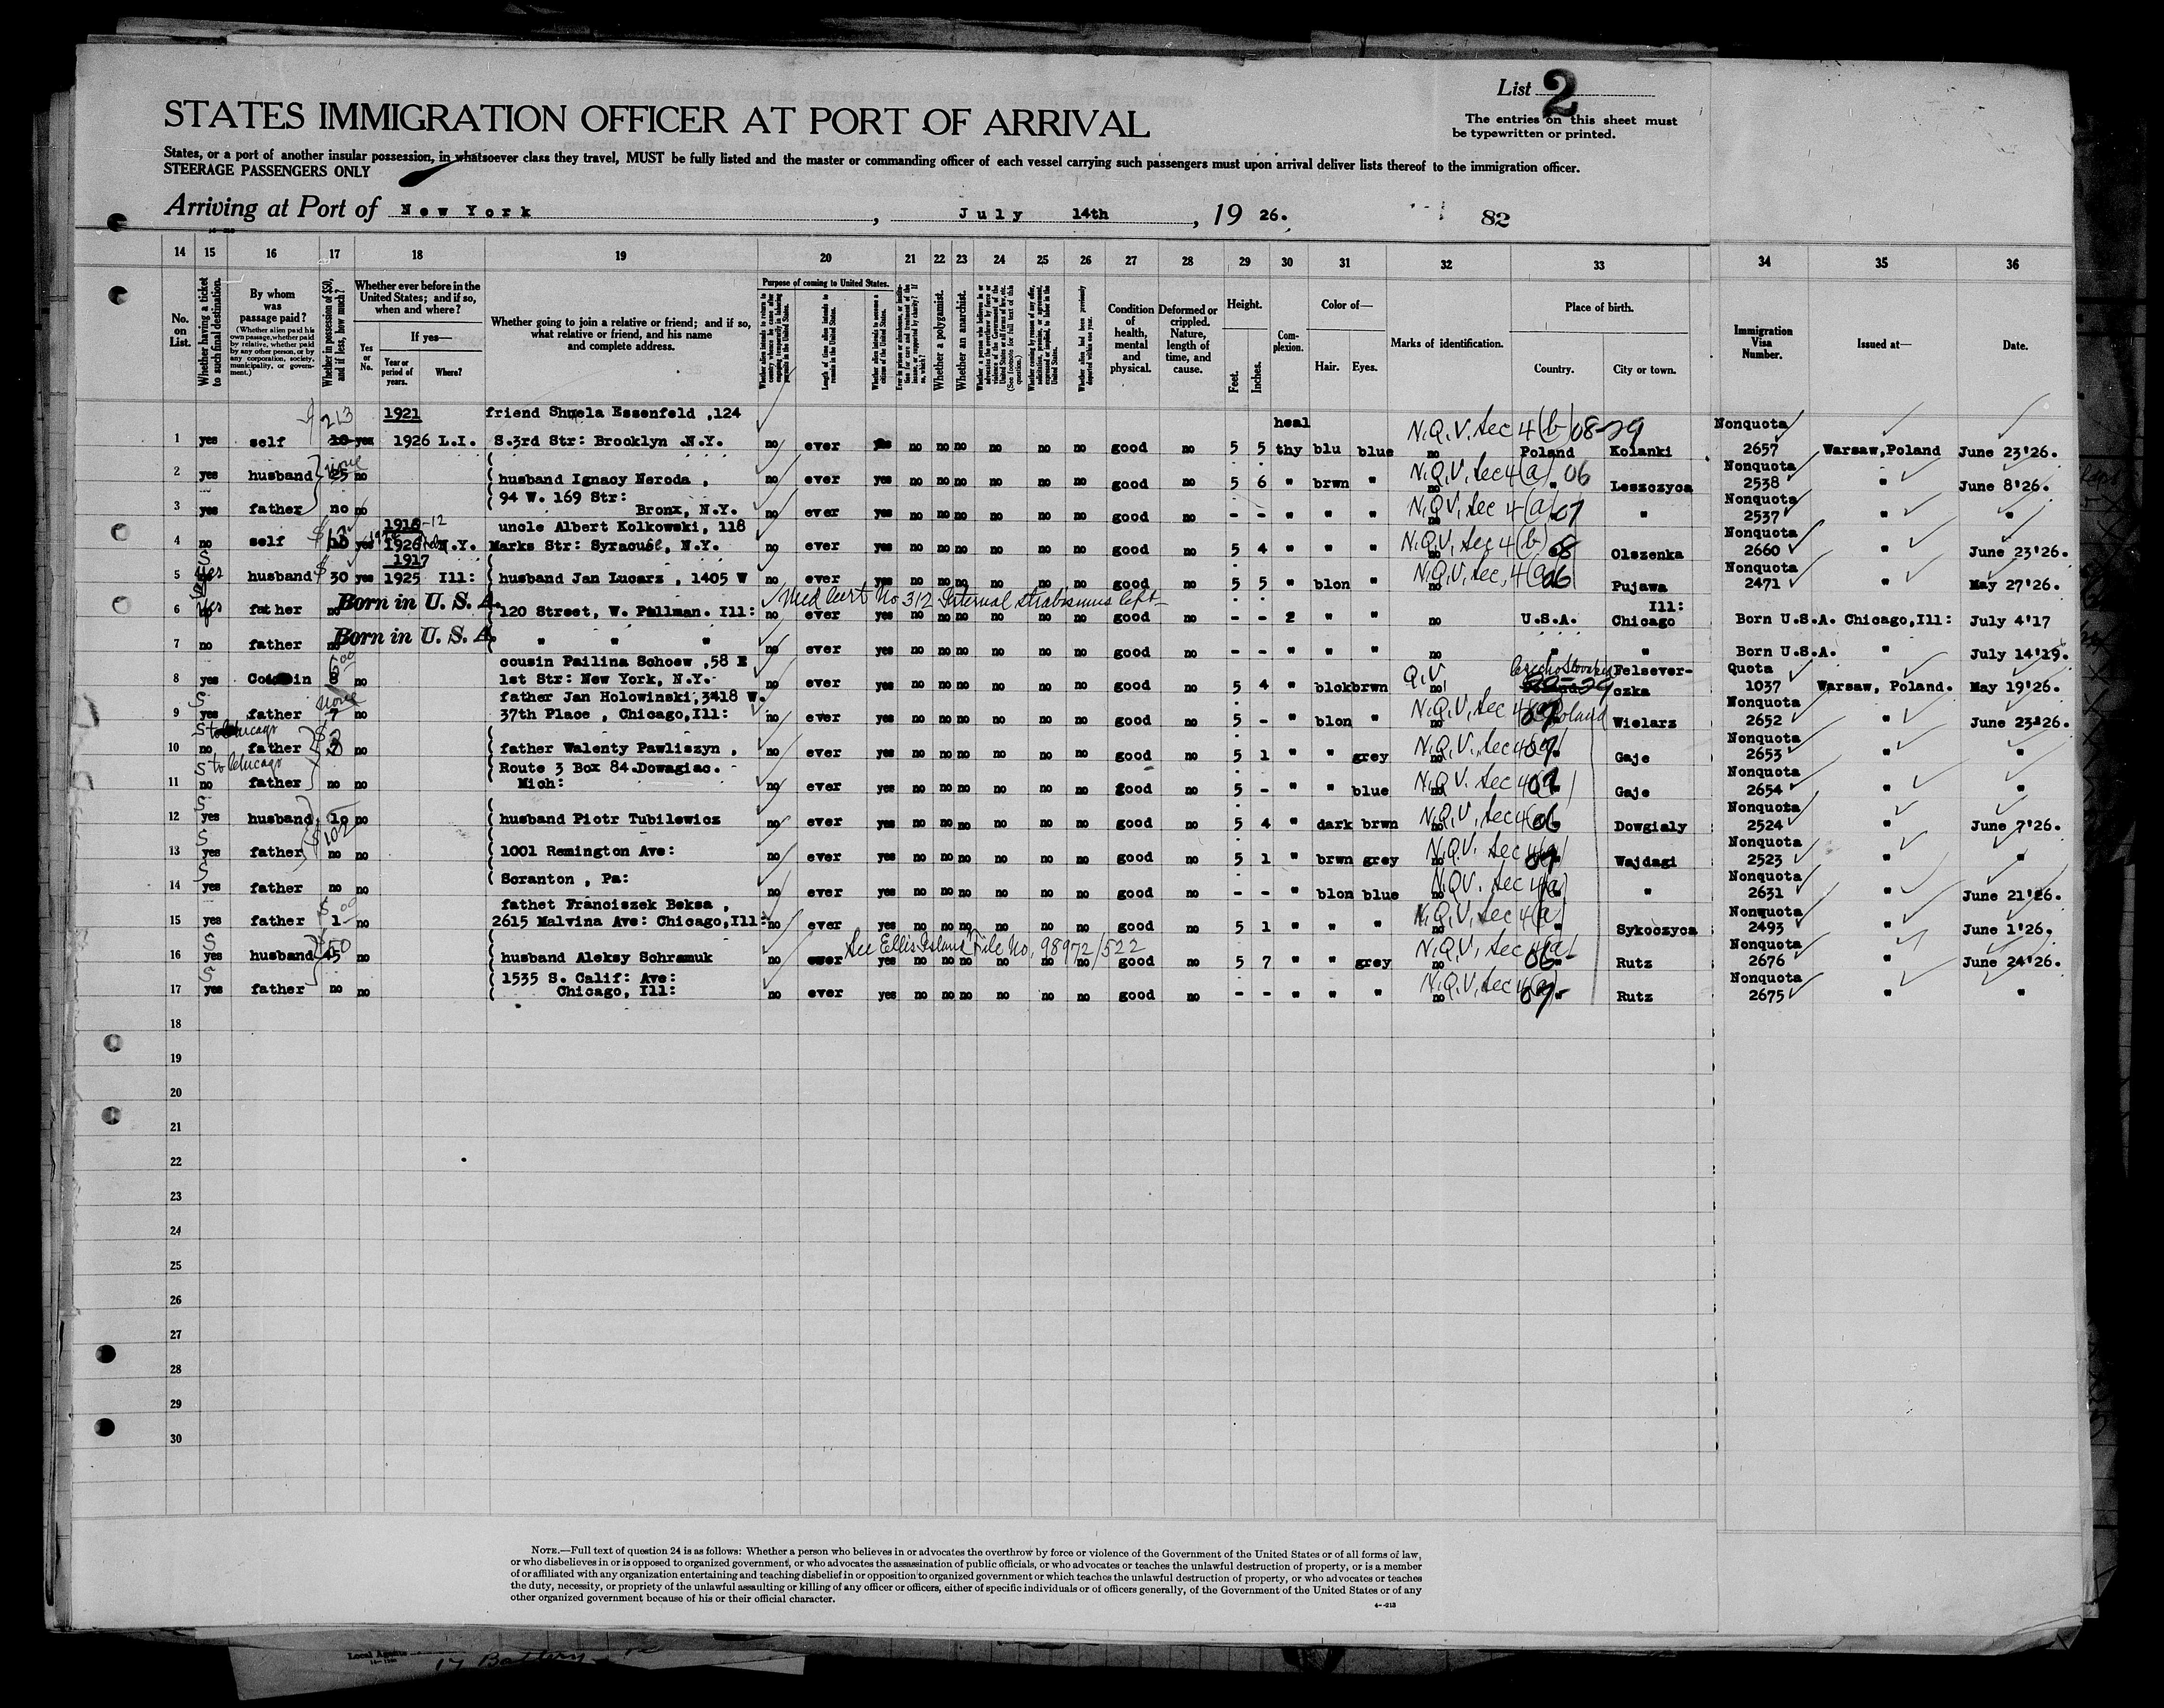 List 2
The entries on this sheet must
be typewritten or printed.
STATES IMMIGRATION OFFICER AT PORT OF ARRIVAL
States, or a port of another insular possession, in whatsoever class they travel, MUST be fully listed and the master or commanding officer of each vessel carrying such passengers must upon arrival deliver lists thereof to the immigration officer.
STEERAGE PASSENGERS ONLY
Arriving at Port of New York, July 14th, 19 26. 82
14 15 16 17 18 19 20 21 22 23 24 25 26 27 28 29 30 31 32 33 34 35 36
No. on List.
Whether having a ticket to such final destination.
By whom was passage paid?
(Whether alien paid his own passage, whether paid by relative, whether paid by any other person, or by any corporation, society, municipality, or government.)
Whether in possession of $50, and if less, how much?
Whether ever before in the United States; and if so, when and where?
Yes or No.
If yes—
Year or period of years.
Where?
Whether going to join a relative or friend; and if so, what relative or friend, and his name and complete address.
Purpose of coming to United States.
Length of time alien intends to remain in the United States.
Whether alien intends to become a citizen of the United States.
Whether a polygamist.
Whether an anarchist.
Condition of health, mental and physical.
Deformed or crippled. Nature, length of time, and cause.
Height.
Feet. Inches.
Complexion.
Color of—
Hair. Eyes.
Marks of identification.
Place of birth.
Country. City or town.
Immigration Visa Number.
Issued at—
Date.
213 1921 friend Shmela Essenfeld ,124 heal N.Q.V. Sec 4(b) 08-29 Nonquota
1 yes self yes 1926 L.I. S.3rd Str: Brooklyn .N.Y. no ever yes no no no no no no good no 5 5 thy blu blue no Poland Kolanki 2657 Warsaw,Poland June 23'26.
none N.Q.V. Sec 4(a) 06 Nonquota
2 yes husband 25 no husband Ignacy Neroda , no ever yes no no no no no no good no 5 6 " brwn " no " Leszczyca 2538 " June 8'26.
94 W. 169 Str: N.Q.V. Sec 4(a) 07 Nonquota
3 yes father no no Bronx, N.Y. no ever yes no no no no no no good no - - " " " no " 2537 " "
1912 uncle Albert Kolkowski, 118 N.Q.V. Sec 4(b) 08 Nonquota
4 no self yes 1926 N.Y. Marks Str: Syracuse, N.Y. no ever yes no no no no no no good no 5 4 " " " Olszenka 2660 " June 23'26.
S 1917 N.Q.V. Sec. 4(a) 06 Nonquota
5 yes husband $ 30 yes 1925 Ill: husband Jan Lucarz , 1405 W no ever yes no no no no no no good no 5 5 " blon " no Pujawa 2471 " May 27'26.
S Born in U. S. A. Med Cert No 312 Internal strabismus left Ill:
6 yes father no 120 Street, W. Pullman. Ill: no ever yes no no no no no no good no - - " " " no U.S.A. Chicago Born U.S.A. Chicago,Ill: July 4'17
Born in U. S. A.
7 no father no " " " no ever yes no no no no no no good no - - " " " no " " Born U.S.A. July 14'19.
5.00 cousin Pailina Schoew ,58 E Q.V. Czechoslovakia Felsever- Quota
8 yes Cousin 8 no 1st Str: New York, N.Y. no ever yes no no no no no no good no 5 4 " blck brwn no czka 1037 Warsaw, Poland. May 19'26.
S none father Jan Holowinski,3418 W. N.Q.V. Sec 4(a) 07 Poland Nonquota
9 yes father 7 no 37th Place , Chicago,Ill: no ever yes no no no no no no good no 5 - " blon " no Wielarz 2652 " June 23'26.
S to Chicago $3 N.Q.V. Sec 4(a) 07 Nonquota
10 no father no father Walenty Pawliszyn , no ever yes no no no no no no good no 5 1 " " grey no Gaje 2653 " "
S to Chicago Route 3 Box 84.Dowagiac. N.Q.V. Sec 4(a) 07 Nonquota
11 no father no no Mich: no ever yes no no no no no no good no 5 - " " blue no Gaje 2654 " "
S N.Q.V. Sec 4(a) 06 Nonquota
12 yes husband 10 no husband Piotr Tubilewicz no ever yes no no no no no no good no 5 4 " dark brwn no Dowgialy 2524 " June 7'26.
S $102 N.Q.V. Sec 4(a) 07 Nonquota
13 yes father no no 1001 Remington Ave: no ever yes no no no no no no good no 5 1 " brwn grey no Wajdagi 2523 " "
S N.Q.V. Sec 4(a) Nonquota
14 yes father no no Scranton , Pa: no ever yes no no no no no no good no - - " blon blue no " 2631 " June 21'26.
$ 1.00 fathet Franciszek Beksa , N.Q.V. Sec 4(a) Nonquota
15 yes father 1 no 2615 Malvina Ave: Chicago,Ill: no ever yes no no no no no no good no 5 1 " " " no " Sykoczyca 2493 " June 1'26.
S $50 See Ellis Island File No. 98972/522 N.Q.V. Sec 4(a) 06 Nonquota
16 yes husband 45 no husband Aleksy Schramuk no ever yes no no no no no no good no 5 7 " " grey no Rutz 2676 " June 24'26.
S 1535 S. Calif: Ave: N.Q.V. Sec 4(a) 07 Nonquota
17 yes father no no Chicago, Ill: no ever yes no no no no no no good no - - " " " no Rutz 2675 " "
18
19
20
21
22
23
24
25
26
27
28
29
30
NOTE.—Full text of question 24 is as follows: Whether a person who believes in or advocates the overthrow by force or violence of the Government of the United States or of all forms of law,
or who disbelieves in or is opposed to organized government, or who advocates the assassination of public officials, or who advocates or teaches the unlawful destruction of property, or is a member
of or affiliated with any organization entertaining and teaching disbelief in or opposition to organized government or which teaches the unlawful destruction of property, or who advocates or teaches
the duty, necessity, or propriety of the unlawful assaulting or killing of any officer or officers, either of specific individuals or of officers generally, of the Government of the United States or of any
other organized government because of his or their official character.
4—213
Local Agents
17 Battery